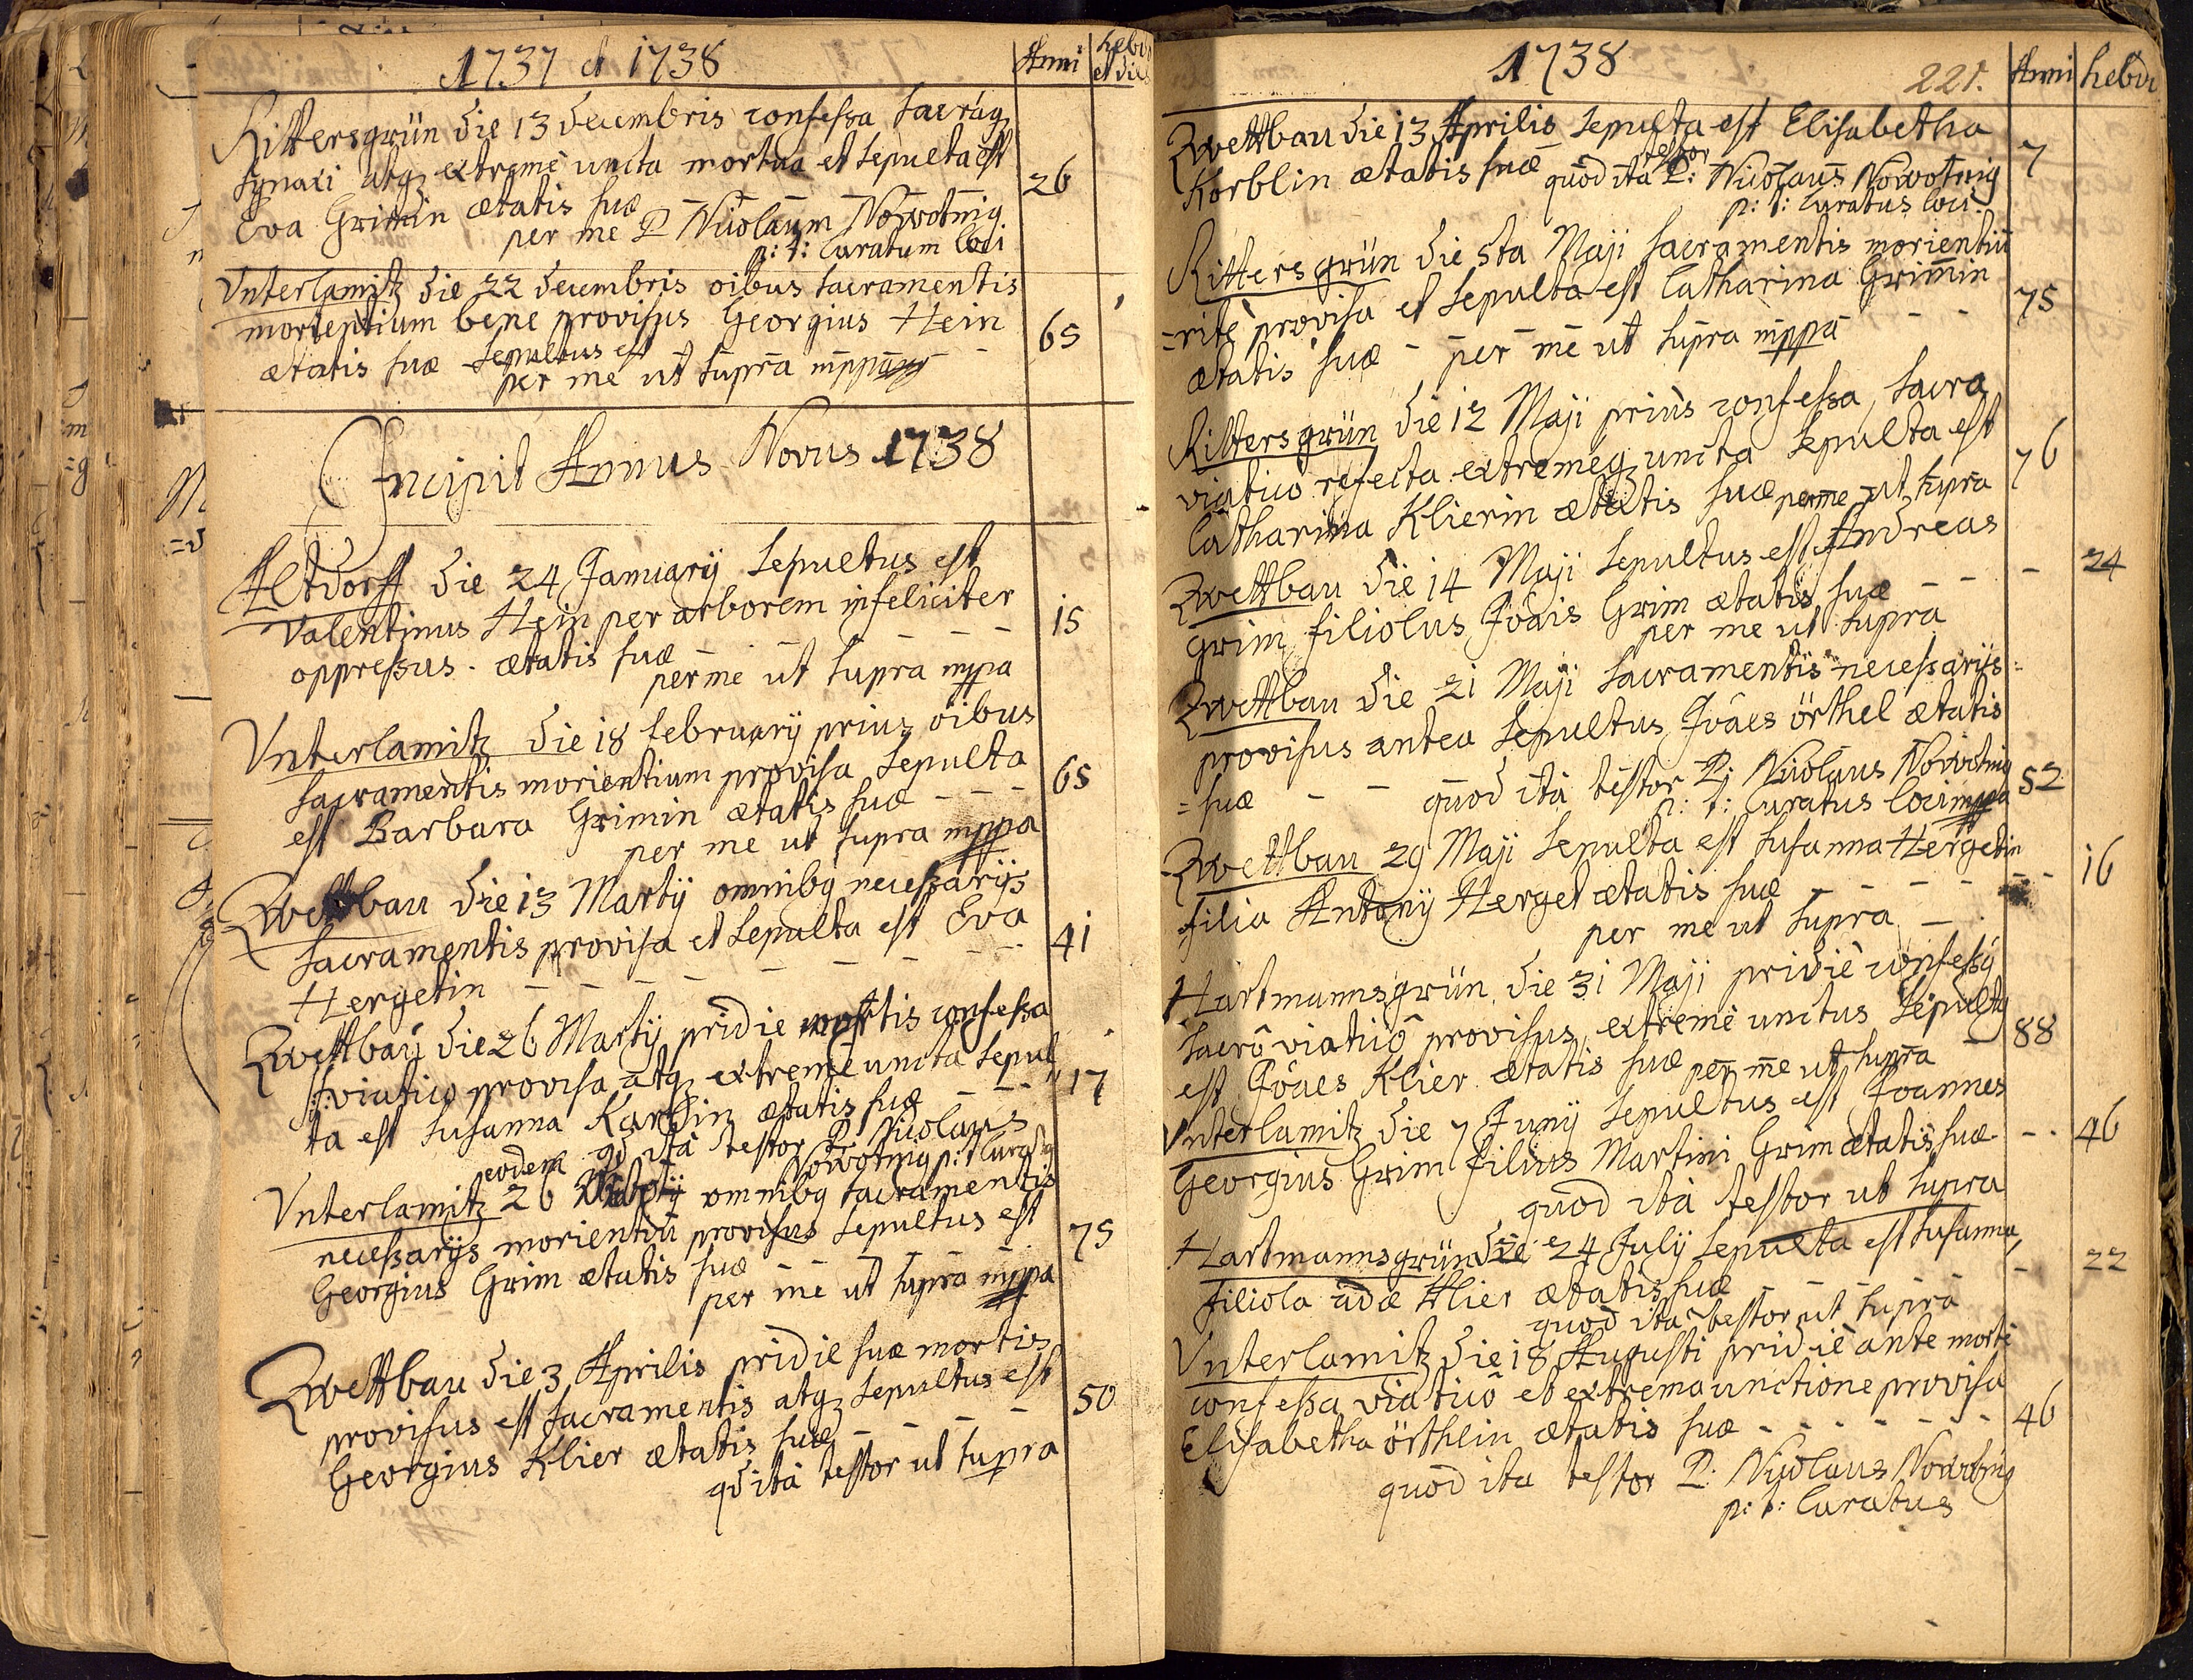 1737 et 1738
Anni
hebd
et dies
Rittersgrün die 13 decembris confessa sacraq
synaxi atq extremè uncta mortua et sepulta est
Eva Grimin ætatis suæ
26
per me P Nicolaum Nowotnig
p: t: Curatum loci
Unterlamitz die 22 decembris oibus sacramentis
morientium bene provisus Georgius Hein
65
ætatis suæ sepultus est
per me ut supra mppa
Incipit Annus Novus 1738
Altdorff die 24 January sepultus est
Valentinus Hein per arborem infeliciter
15
oppressus. ætatis suæ
per me ut supra mppa
Unterlamitz die 18 february prius oibus
sacramentis morientium provisa sepulta
65
est Barbara Grimin ætatis suæ
per me ut supra mppa
Zwettbau die 13 Martij omnibq necessarijs
sacramentis provisa et sepulta est Eva
41
Hergetin
Zwettbau die 26 Martij pridie mortis confessa
viatico provisa atq extremè uncta sepul
17
ta est Susanna ætatis suæ
qd ità testor P Nicolaus
Nowotnig p: t Curatq
eodem
Unterlamitz 26 Martij omnibq sacramentis
necessarijs morientiū provisus sepultus est
75
Georgius Grim ætatis suæ
per me ut supra mppa
Zwettbau die 3 Aprilis pridie suæ mortis
provisus est sacramentis atq sepultus est
50
Georgius Klier ætatis suæ
qd ità testor ut supra
1738
221.
Anni
hebd
Zwettbau die 13 Aprilis sepulta est Elisabetha
7
Korblin ætatis suæ quod ita testor P: Nicolaus Nowotnig
p: t: Curatus loci
Rittersgrün die 5ta Maji sacramentis morientiū
=ritè provisa et sepulta est Catharina Grimin
75
ætatis suæ - per me ut supra mppa
Rittersgrün die 12 Maji priùs confessa, sacra
viatico refecta extremeq uncta sepulta est
76
Catharina Klierin ætatis suæ per me ut supra
Zwettbau die 14 Maji sepultus est Andreas
24
Grim filiolus Jōais Grim ætatis suæ
per me ut supra
Zwettbau die 21 Maji sacramentis necessarijs
provisus antea sepultus Jōaes örthel ætatis
=suæ quod ità testor P: Nicolaus Nowotnig
52
p: t: Curatus loci mppa
Zwettbau 29 Maji sepulta est Susanna Hergetin
16
filia Antonij Herget ætatis suæ
per me ut supra
Hartmannsgrün die 31 Maji pridiè confessq
sacrô viaticô provisus, extremè unctus sepultq
88
est Jōaes Klier ætatis suæ per me ut supra
Unterlamitz die 7 Junij sepultus est Joannes
46
Georgius Grim filius Martini Grim ætatis suæ
quod ità testor ut supra
Hartmannsgrün die 24 July sepulta est Susanna
22
filiola adæ Klier ætatis suæ
quod ità testor ut supra
Unterlamitz die 18 Augusti pridiè ante mortē
confessa viaticô et extrema unctione provisa
46
Elisabetha örthlin ætatis suæ
quod ita testor P. Nicolaus Nowotnig
p: t: Curatus